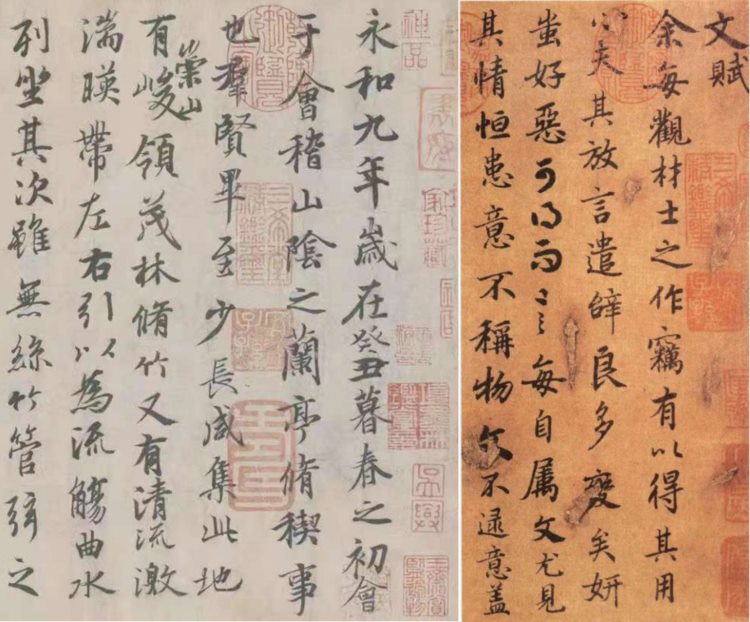 神品
永和九年歲在癸丑暮春之初會
于會稽山陰之蘭亭脩稧事
也羣賢畢至少長咸集此地
有崇山峻領茂林脩竹又有清流激
湍暎帶左右引以為流觴曲水
列坐其次雖無絲竹管弦之
文賦
余每觀材士之作竊有以得其用
心夫其放言遣辭良多變矣妍
蚩好惡可得而言每自属文尤見
其情恒患意不稱物文不逮意盖